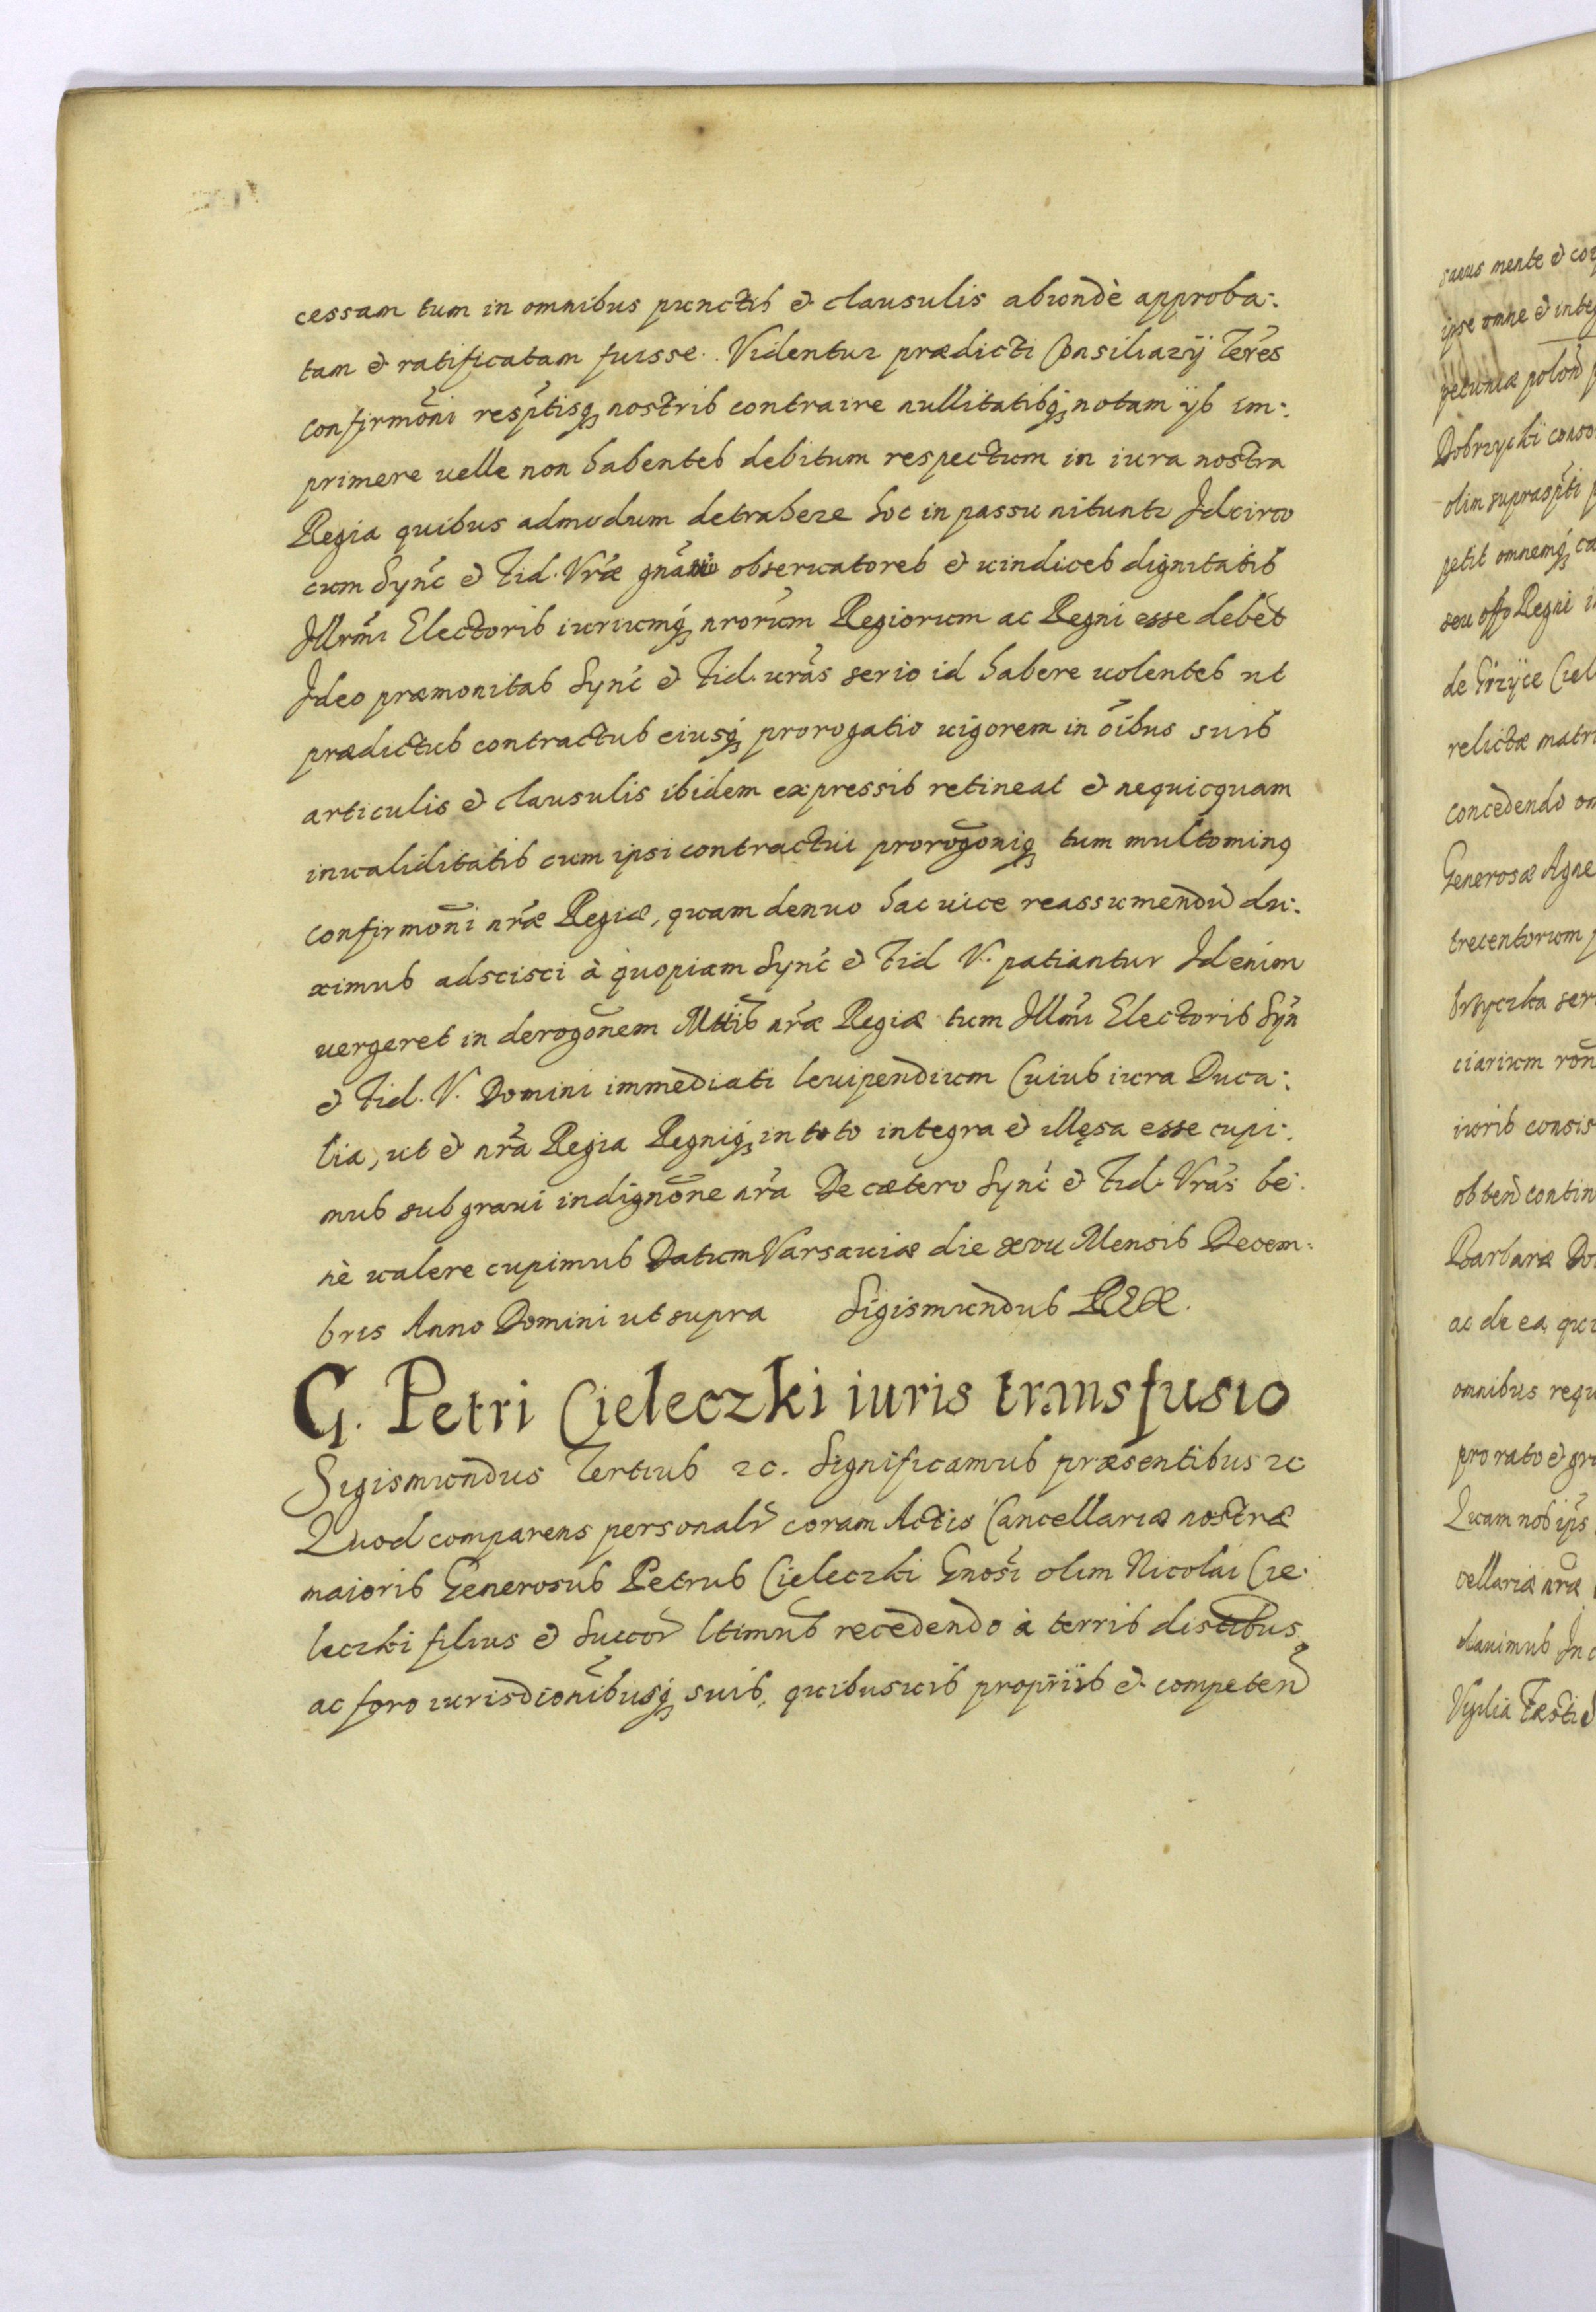 cessam tum in omnibus punctis & clausulis abundè approba:
tam & ratificatam fuisse. Videntur prædicti Consiliarÿ Terēs
confirmōni resp̄tisq; nostris contraire nullitatibq; notam ÿs im:
primere uelle non habentes debitum respectum in iura nostra
Regia quibus admodum detrahere hoc in passu nituntr Idcirco
cum Synč & Fid. Vræ obseruatores & uindices dignitatis
Illrmi Electoris iuriumq; nrorum Regiorum ac Regni esse debet
Ideo præmonitas Synč & Fid. uras serio id habere uolentes ut
prædictus contractus eiusq; prorogatio uigorem in oībus suis
articulis & clausulis ibidem expressis retineat & nequicquam
inualiditatis cum ipsi contractui prorogōniq; tum multominq
confirmōni nræ Regiæ, quam denuo hac uice reassumendū du:
ximus adscisci à quopiam Synč & Fid V. patiantur Id enim
uergeret in derogōnem Mttis nræ Regiæ tum Illmi Electoris Syn
& Fid. V. Domini immediati leuipendium Cuius iura Duca:
lia, ut & nra Regia Regniq; in toto integra & illęsa esse cupi:
mus sub graui indignōne nra De cætero Synč & Fid. Vras be:
nè ualere cupimus Datum Varsauiæ die xvii Mensis Decem:
bris Anno Domini ut supra Sigismundus REX.
G. Petri Cieleczki iuris transfusio
Sigismundus Tertius 2c. Significamus præsentibus 2c
Quod comparens personalr coram Actis Cancellariæ nostræ
maioris Generosus Petrus Cieleczki Gnosi olim Nicolai Cie:
leczki filius & Succor ltimus recedendo à terris distibus
ac foro iurisdionibusq; suis quibusuis proprÿs & competen
sanus mente & cor
ipse omne & integ
pecuniæ polon p
Dobrzycki conso
olim supraspti p
petit omnemq; ca
seu offo Regni i
de Grzÿce Ciel
relictæ matri
concedendo om
Generosæ Agne
trecentorum p
ciarium ron
iuris consis
obten contin
Barbaræ Do
ac de ea qui
omnibus requ
pro rato & gra
Quam nos ips
cellariæ nræ
clauimus In c
Vigilia Fæsti S